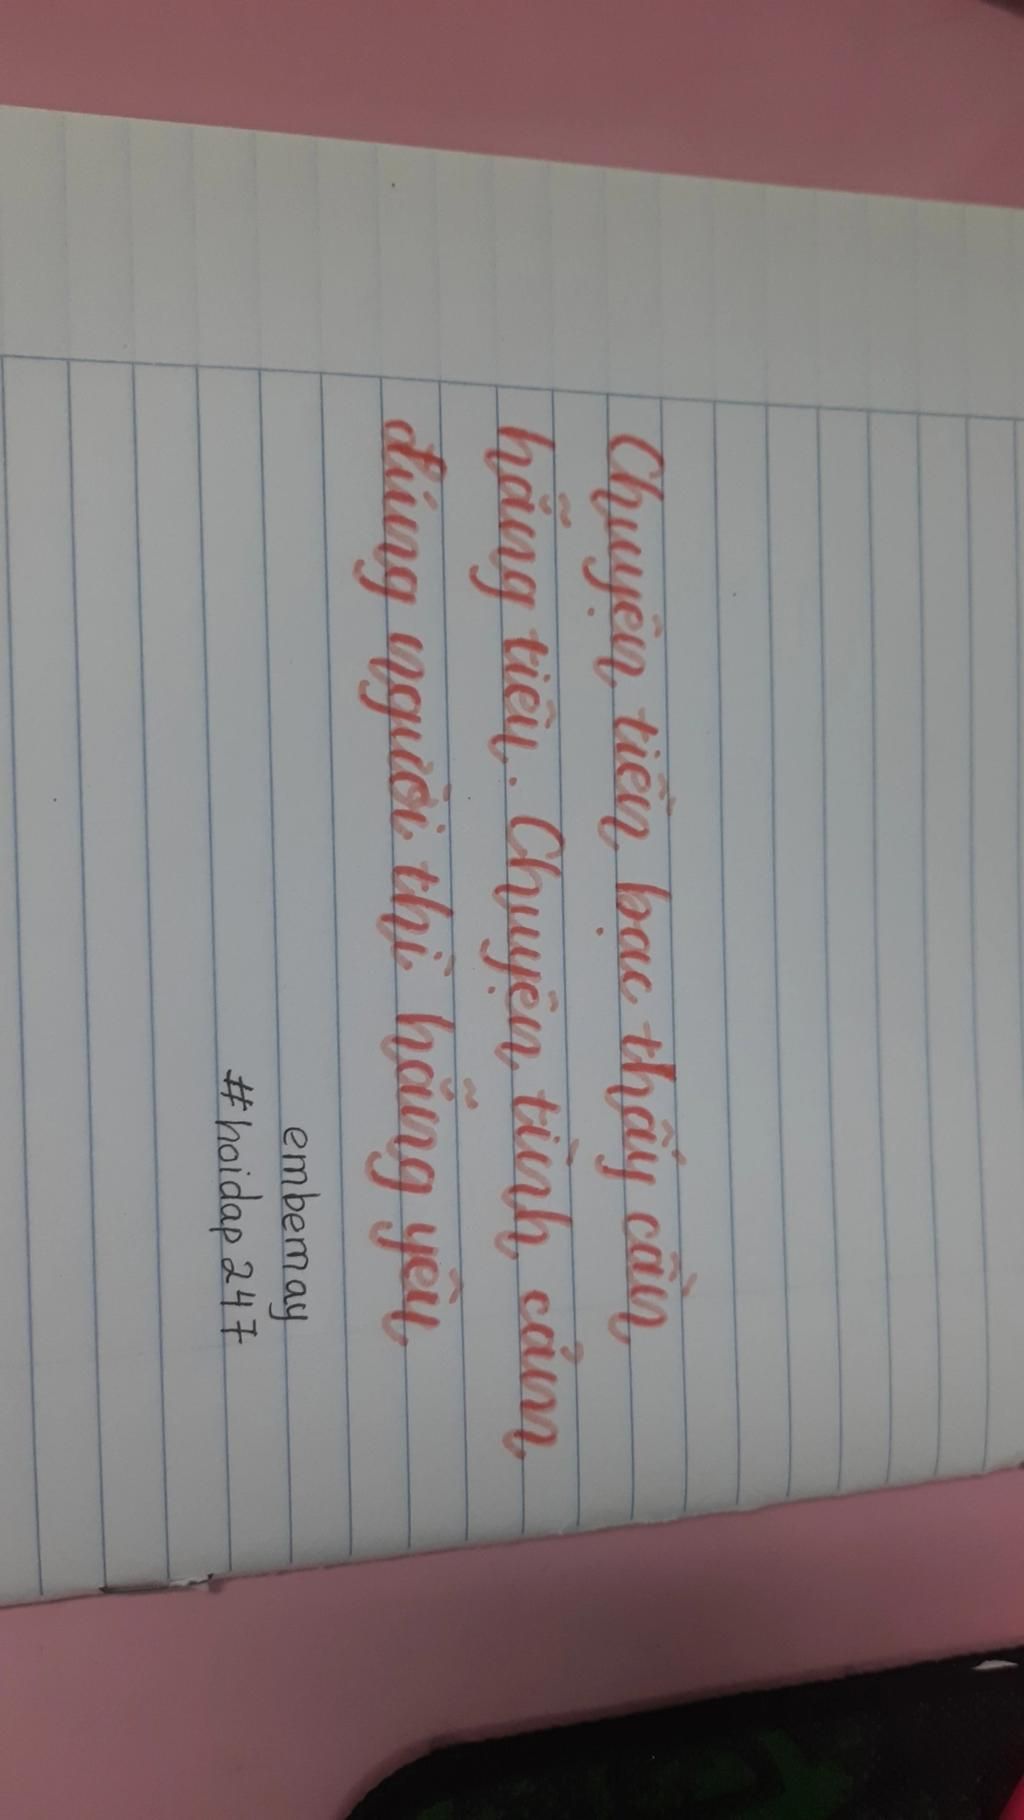 Chuyện tiền bạc thấy cần
hẵng tiêu. Chuyện tình cảm
đúng người thì hẵng yêu
embemay
#hoidap247